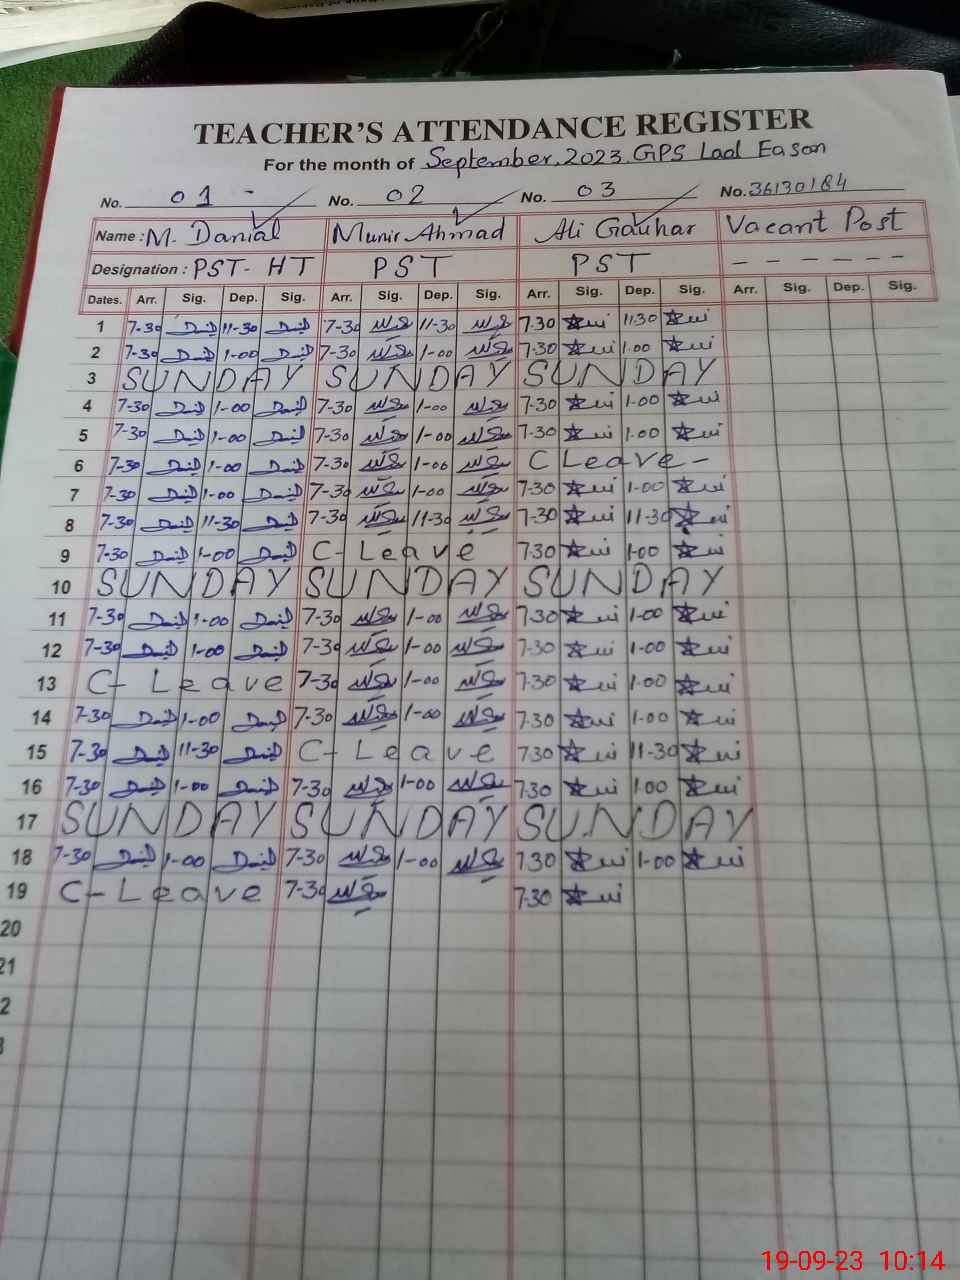 TEACHER'S ATTENDANCE REGISTER
For the month of September, 2023. GPS Laal Eason
No. 01 - No. 02 No. 03 No. 36130184
Name : M. Danial Munir Ahmad Ali Gauhar Vacant Post
Designation : PST- HT PST PST - - - - - -
Dates. Arr. Sig. Dep. Sig. Arr. Sig. Dep. Sig. Arr. Sig. Dep. Sig. Arr. Sig. Dep. Sig.
1 7-30 11-30 7-30 11-30 7.30 11.30
2 7-30 1-00 7-30 1-00 7.30 1.00
3 SUNDAY SUNDAY SUNDAY
4 7-30 1-00 7-30 1-00 7.30 1.00
5 7-30 1-00 7-30 1-00 7.30 1.00
6 7-30 1-00 7-30 1-00 C Leave -
7 7-30 1-00 7-30 1-00 7.30 1-00
8 7-30 11-30 7-30 11-30 7-30 11-30
9 7-30 1-00 C- Leave 7-30 1-00
10 SUNDAY SUNDAY SUNDAY
11 7-30 1-00 7-30 1-00 7-30 1-00
12 7-30 1-00 7-30 1-00 7-30 1-00
13 C- Leave 7-30 1-00 7.30 1-00
14 7-30 1-00 7-30 1-00 7.30 1-00
15 7-30 11-30 C- Leave 730 11-30
16 7-30 1-00 7-30 1-00 7.30 1.00
17 SUNDAY SUNDAY SUNDAY
18 7-30 1-00 7-30 1-00 730 1-00
19 C-Leave 7-30 7-30
20
21
2
19-09-23 10:14